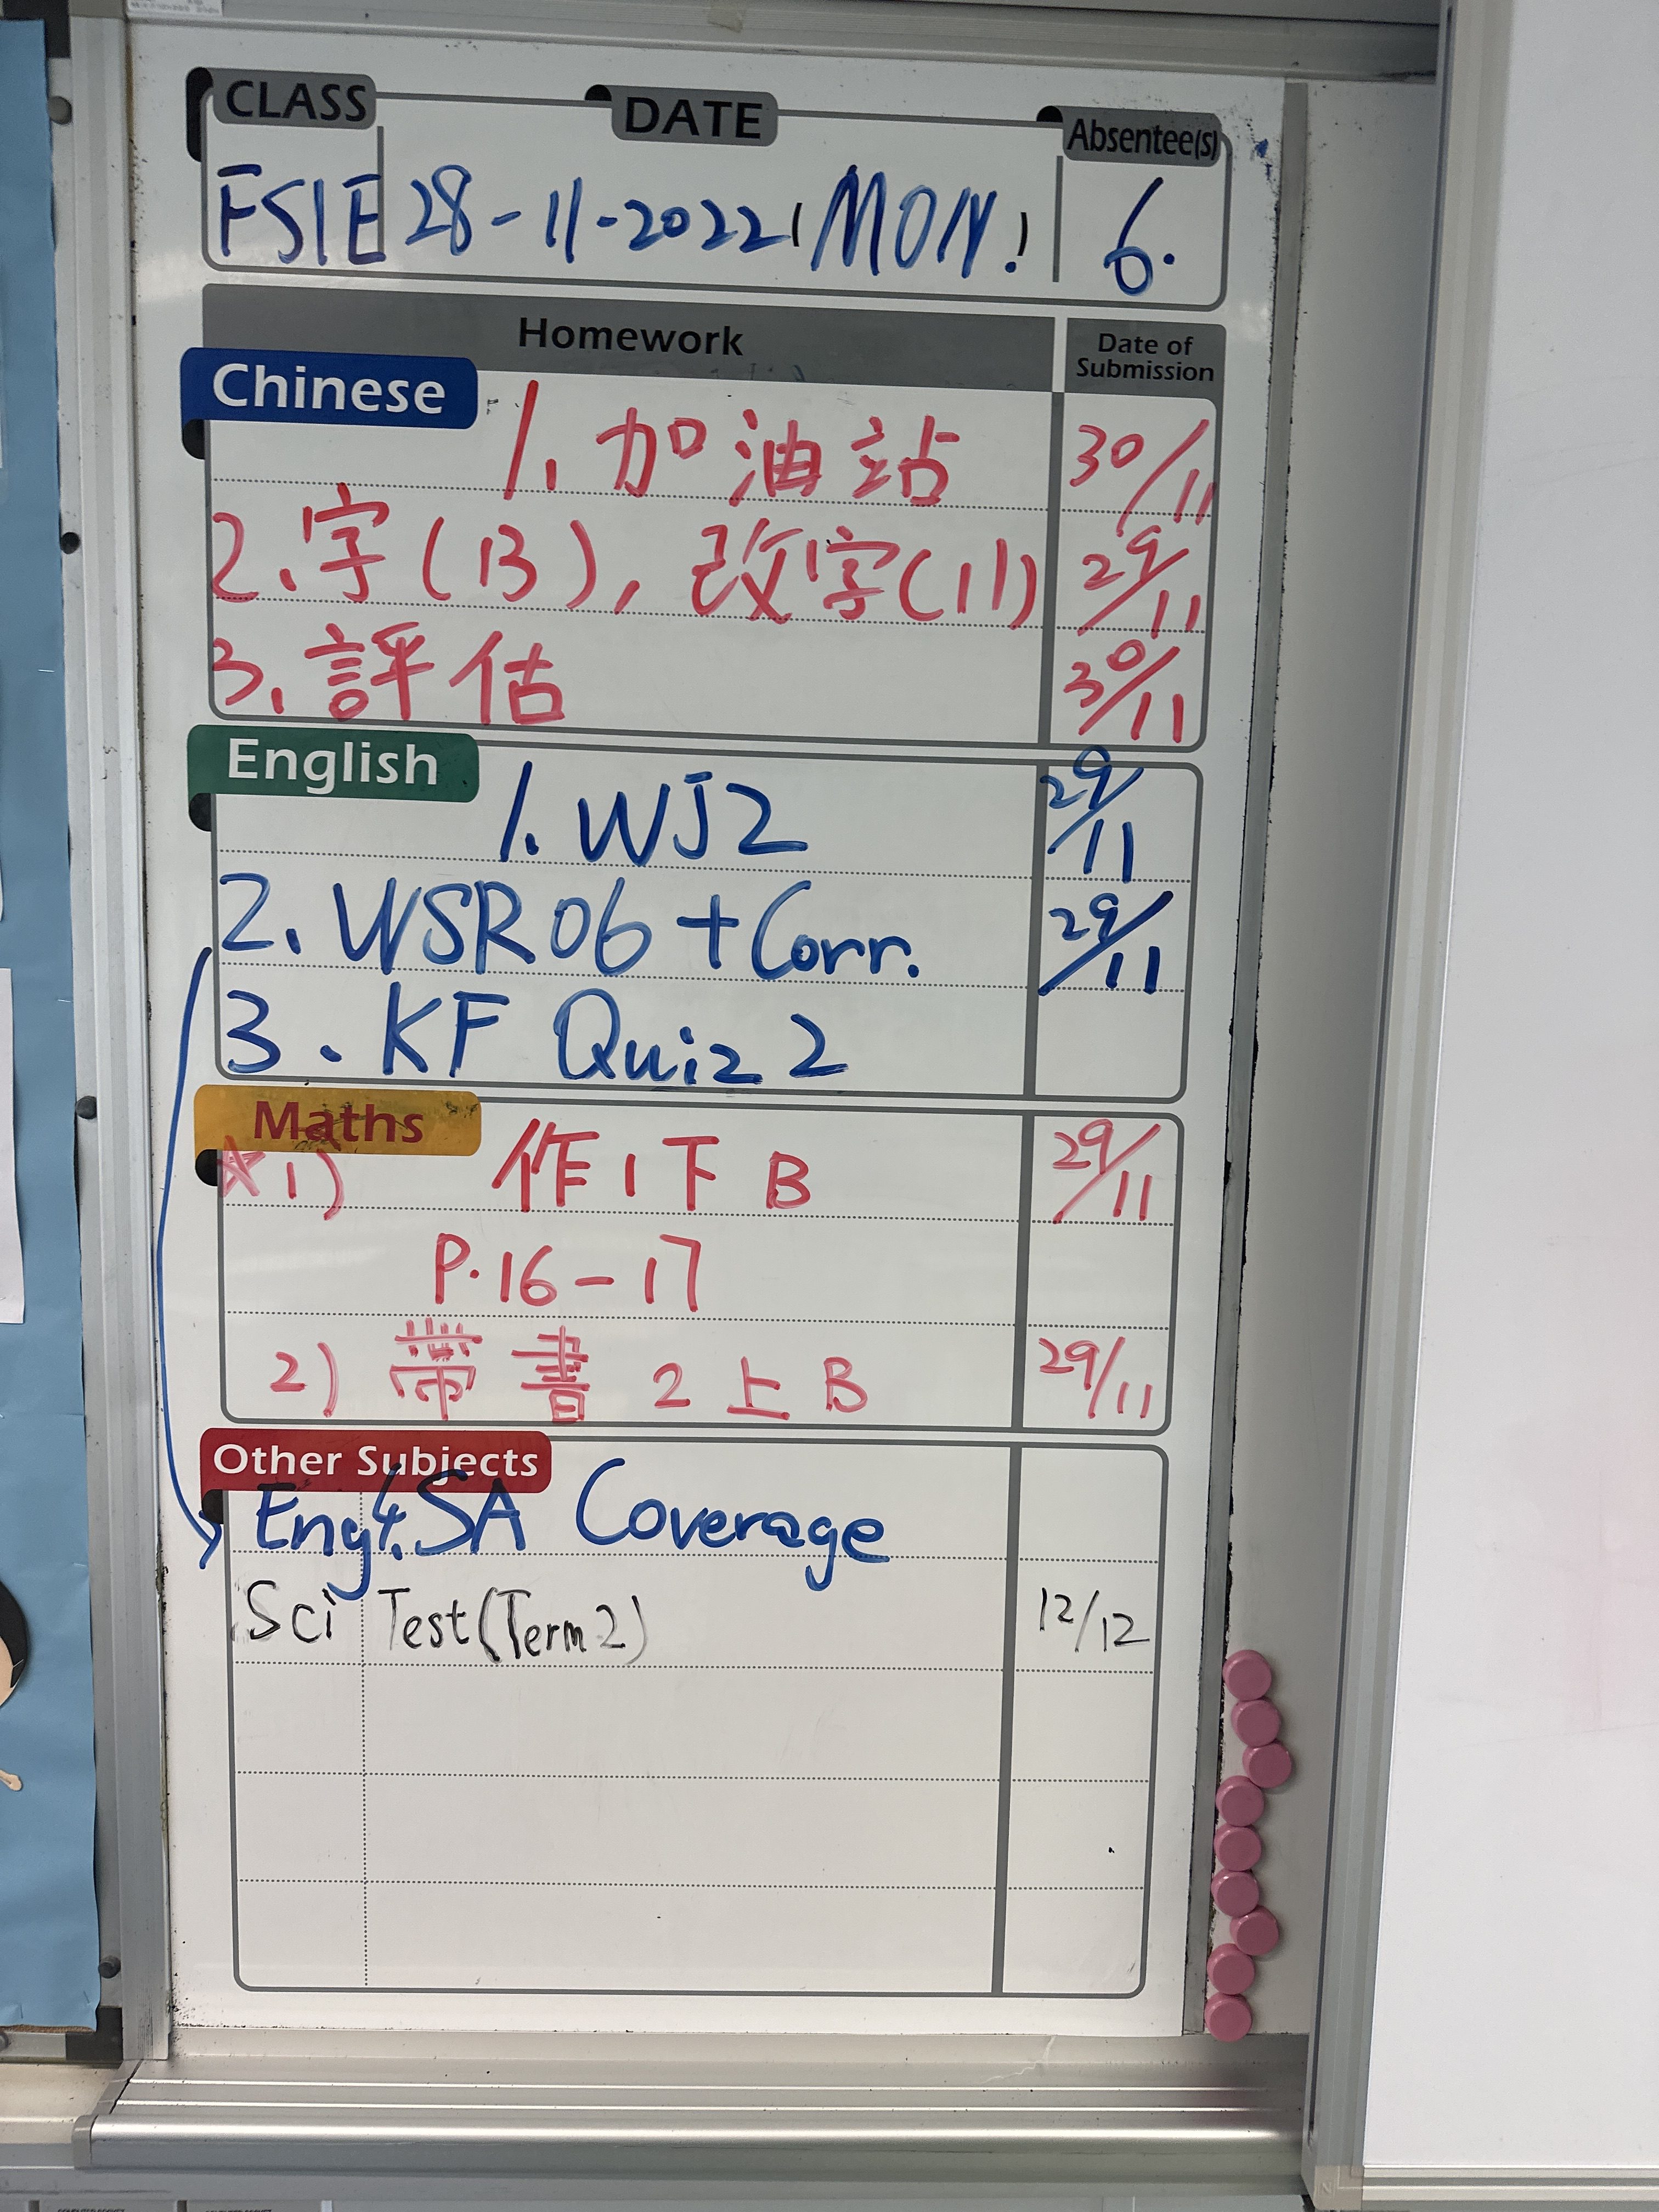 CLASS DATE Absentee(s)
FS1E 28-11-2022 (MON.) 6.
Homework Date of Submission
Chinese
1. 加油站 30/11
2. 字(13), 改字(11) 29/11
3. 評估 30/11
English
1. WJ2 29/11
2. WSR06 + Corr. 29/11
3. KF Quiz 2
Maths
☆1) 作1下B 29/11
P.16-17
2) 帶書2上B 29/11
Other Subjects
Eng 4. SA Coverage
Sci Test (Term 2) 12/12